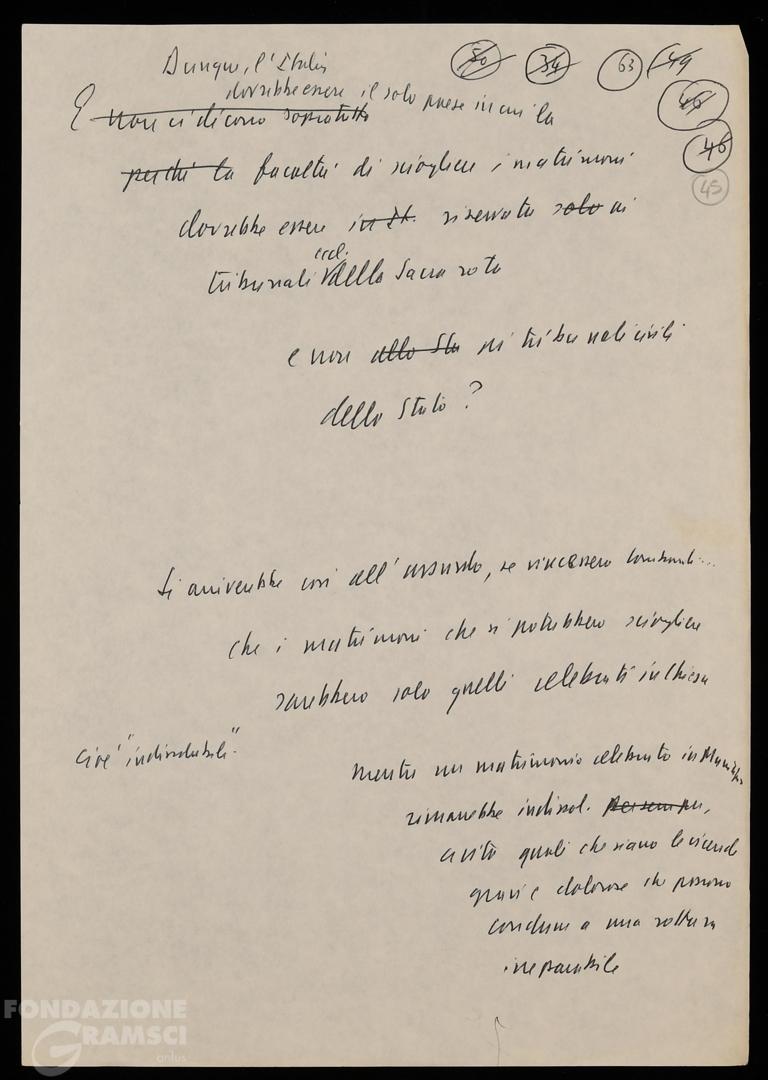 50 34 63 49
46
46
45
Dunque, l'Italia
dovrebbe essere il solo paese in cui la
E non ci dicono soprattutto
perché la facoltà di sciogliere i matrimoni
dovrebbe essere in It. riservata solo ai
tribunali eccl. della Sacra rota
e non allo Sta ai tribunali civili
dello Stato?
Si arriverebbe così all'assurdo, se vincessero
che i matrimoni che si potrebbero sciogliere
sarebbero solo quelli celebrati in Chiesa
cioè "indissolubili".
mentre un matrimonio celebrato in Municipio
rimarrebbe indissol. per sempre,
a vita quali che siano le vicende
gravi e dolorose che possono
condurre a una rottura
irreparabile
FONDAZIONE
GRAMSCI
onlus